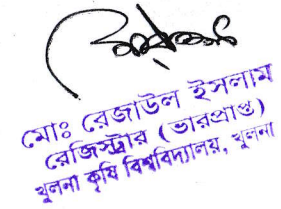 মোঃ রেজাউল ইসলাম
রেজিস্ট্রার (ভারপ্রাপ্ত)
খুলনা কৃষি বিশ্ববিদ্যালয়, খুলনা